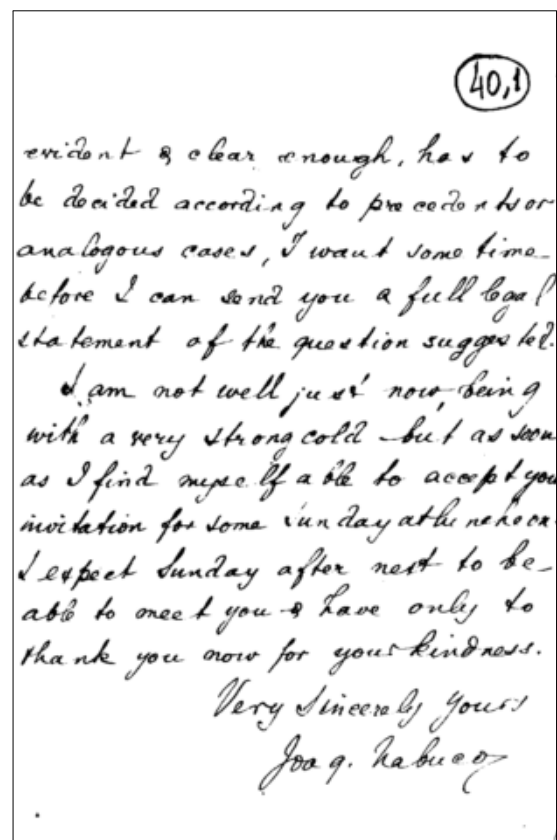 40,1
evident & clear enough, has to
be decided according to precedents or
analogous cases, I want some time
before I can send you a full legal
statement of the question suggested.
I am not well just now, being
with a very strong cold – but as soon
as I find myself able to accept you
invitation for some Sunday
I expect Sunday after next to be
able to meet you & have only to
thank you now for your kindness.
Very Sincerely Yours
Joaq. Nabuco